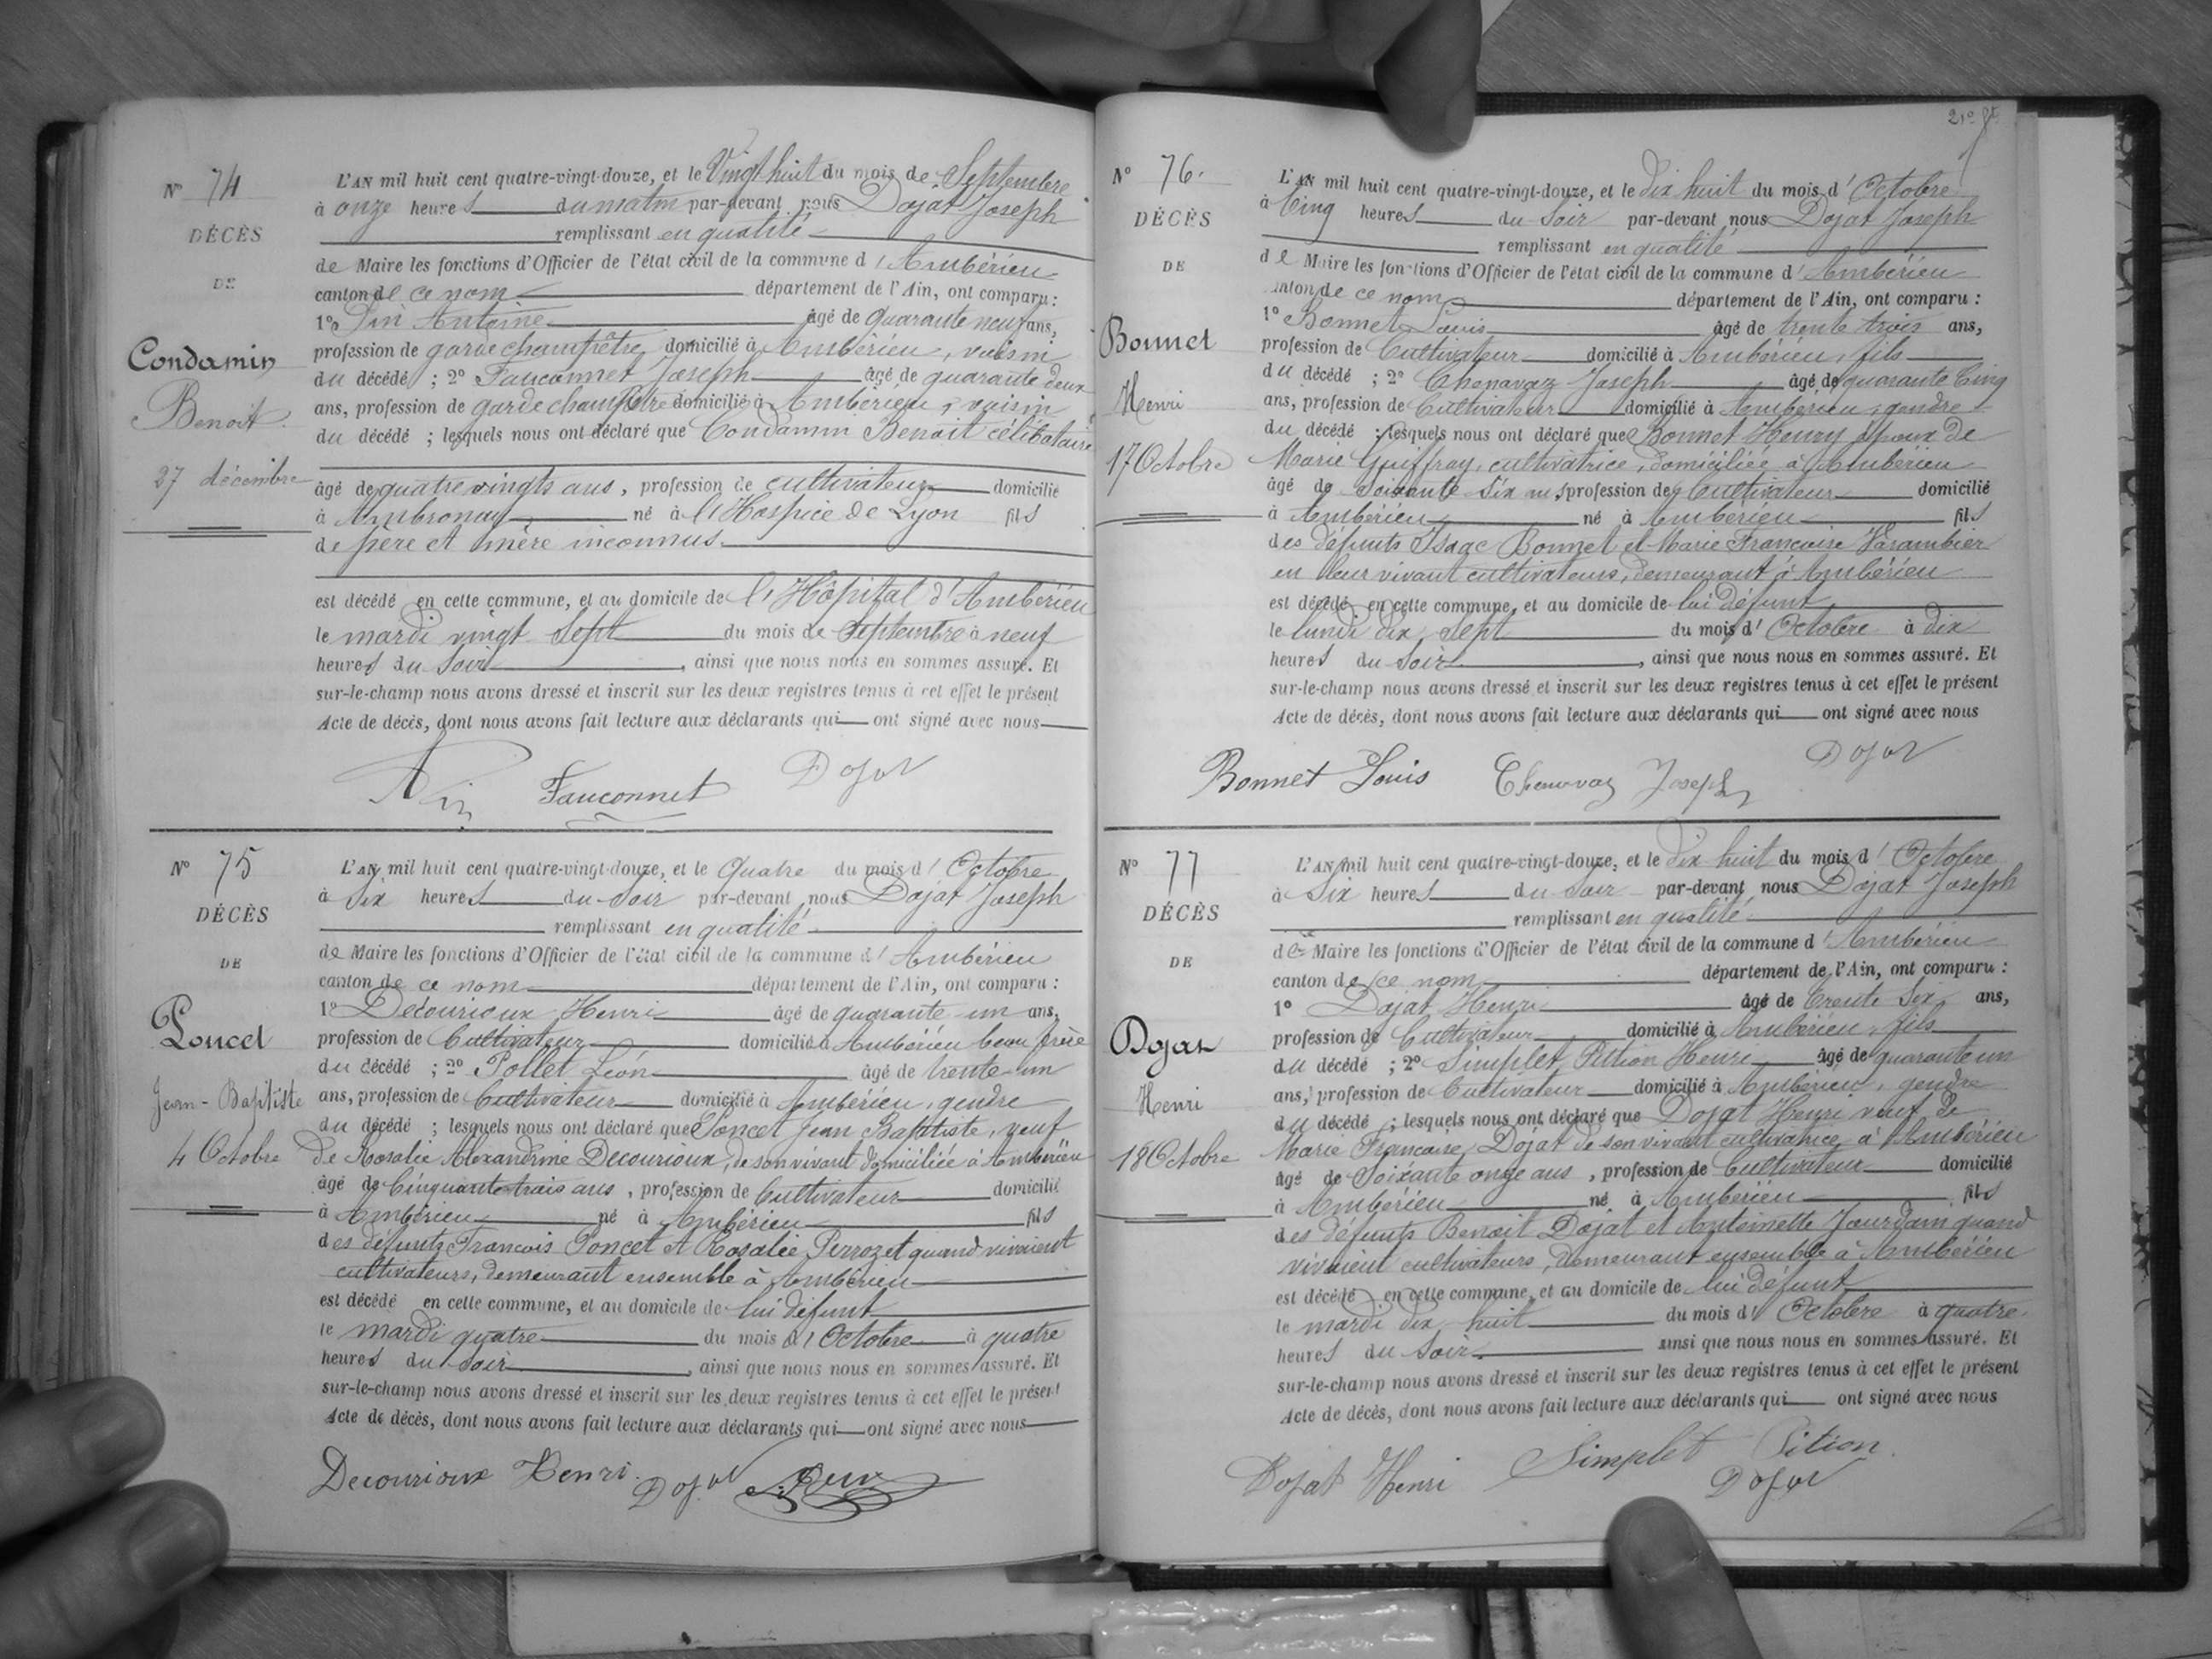 N° 74
DÉCÈS
DE
Condamin
Benoit
27 décembre
L'AN mil huit cent quatre-vingt-douze, et le Vingt huit du mois de Septembre
à onze heures du matin par-devant nous Dojat Joseph
remplissant en qualité
de Maire les fonctions d'Officier de l'état civil de la commune d'Ambérieu
canton de ce nom département de l'Ain, ont comparu :
1° Pin Antoine âgé de quarante neuf ans,
profession de garde champêtre domicilié à Ambérieu, voisin
du décédé ; 2° Fauconnet Joseph âgé de quarante deux
ans, profession de garde champêtre domicilié à Ambérieu, voisin
du décédé ; lesquels nous ont déclaré que Condamin Benoit célibataire
âgé de quatre vingts ans, profession de cultivateur domicilié
à Ambronay né à l'Hospice de Lyon fils
de père et mère inconnus.
est décédé en cette commune, et au domicile de l'Hôpital d'Ambérieu
le mardi vingt sept du mois de septembre à neuf
heures du soir, ainsi que nous nous en sommes assuré. Et
sur-le-champ nous avons dressé et inscrit sur les deux registres tenus à cet effet le présent
Acte de décès, dont nous avons fait lecture aux déclarants qui ont signé avec nous
Fauconnet Dojat
N° 75
DÉCÈS
DE
Poncet
Jean-Baptiste
4 Octobre
L'AN mil huit cent quatre-vingt-douze, et le quatre du mois d'Octobre
à six heures du soir par-devant nous Dojat Joseph
remplissant en qualité
de Maire les fonctions d'Officier de l'état civil de la commune d'Ambérieu
canton de ce nom département de l'Ain, ont comparu :
1° Decourioux Henri âgé de quarante-un ans,
profession de Cultivateur domicilié à Ambérieu beau frère
du décédé ; 2° Pollet Léon âgé de trente-un
ans, profession de Cultivateur domicilié à Ambérieu, gendre
du décédé ; lesquels nous ont déclaré que Poncet Jean Baptiste, veuf
de Rosalie Alexandrine Decourioux, de son vivant domiciliée à Ambérieu
âgé de Cinquante-trois ans, profession de Cultivateur domicilié
à Ambérieu né à Ambérieu fils
des défunts François Poncet et Rosalie Perrozet quand vivaient
cultivateurs, demeurant ensemble à Ambérieu
est décédé en cette commune, et au domicile de lui défunt
le mardi quatre du mois d'Octobre à quatre
heures du soir, ainsi que nous nous en sommes assuré. Et
sur-le-champ nous avons dressé et inscrit sur les deux registres tenus à cet effet le présent
Acte de décès, dont nous avons fait lecture aux déclarants qui ont signé avec nous
Decourioux Henri. Dojat
N° 76.
DÉCÈS
DE
Bonnet
Henri
17 Octobre
L'AN mil huit cent quatre-vingt-douze, et le dix huit du mois d'Octobre
à Cinq heures du soir par-devant nous Dojat Joseph
remplissant en qualité
de Maire les fonctions d'Officier de l'état civil de la commune d'Ambérieu
canton de ce nom département de l'Ain, ont comparu :
1° Bonnet Louis âgé de trente trois ans,
profession de Cultivateur domicilié à Ambérieu, fils
du décédé ; 2° Chenavaz Joseph âgé de quarante Cinq
ans, profession de Cultivateur domicilié à Ambérieu, gendre
du décédé ; lesquels nous ont déclaré que Bonnet Henry époux de
Marie Guiffray, cultivatrice, domiciliée à Ambérieu
âgé de soixante-six ans, profession de Cultivateur domicilié
à Ambérieu né à Ambérieu fils
des défunts Isaac Bonnet et Marie Françoise Varambier
en leur vivant cultivateurs, demeurant à Ambérieu
est décédé en cette commune, et au domicile de lui défunt
le lundi dix sept du mois d'Octobre à dix
heures du soir, ainsi que nous nous en sommes assuré. Et
sur-le-champ nous avons dressé et inscrit sur les deux registres tenus à cet effet le présent
Acte de décès, dont nous avons fait lecture aux déclarants qui ont signé avec nous
Bonnet Louis Chenavaz Joseph Dojat
N° 77
DÉCÈS
DE
Dojat
Henri
18 Octobre
L'AN mil huit cent quatre-vingt-douze, et le dix huit du mois d'Octobre
à Six heures du soir par-devant nous Dojat Joseph
remplissant en qualité
de Maire les fonctions d'Officier de l'état civil de la commune d'Ambérieu
canton de ce nom département de l'Ain, ont comparu :
1° Dojat Henri âgé de trente six ans,
profession de Cultivateur domicilié à Ambérieu, fils
du décédé ; 2° Simplet Pition Henri âgé de quarante un
ans, profession de Cultivateur domicilié à Ambérieu, gendre
du décédé ; lesquels nous ont déclaré que Dojat Henri veuf de
Marie Françoise Dojat de son vivant cultivatrice à Ambérieu
âgé de Soixante onze ans, profession de Cultivateur domicilié
à Ambérieu né à Ambérieu fils
des défunts Benoit Dojat et Antoinette Jourdain quand
vivaient cultivateurs, demeurant ensemble à Ambérieu
est décédé en cette commune, et au domicile de lui défunt
le mardi dix huit du mois d'Octobre à quatre
heures du soir. ainsi que nous nous en sommes assuré. Et
sur-le-champ nous avons dressé et inscrit sur les deux registres tenus à cet effet le présent
Acte de décès, dont nous avons fait lecture aux déclarants qui ont signé avec nous
Dojat Henri Simplet Pition
Dojat